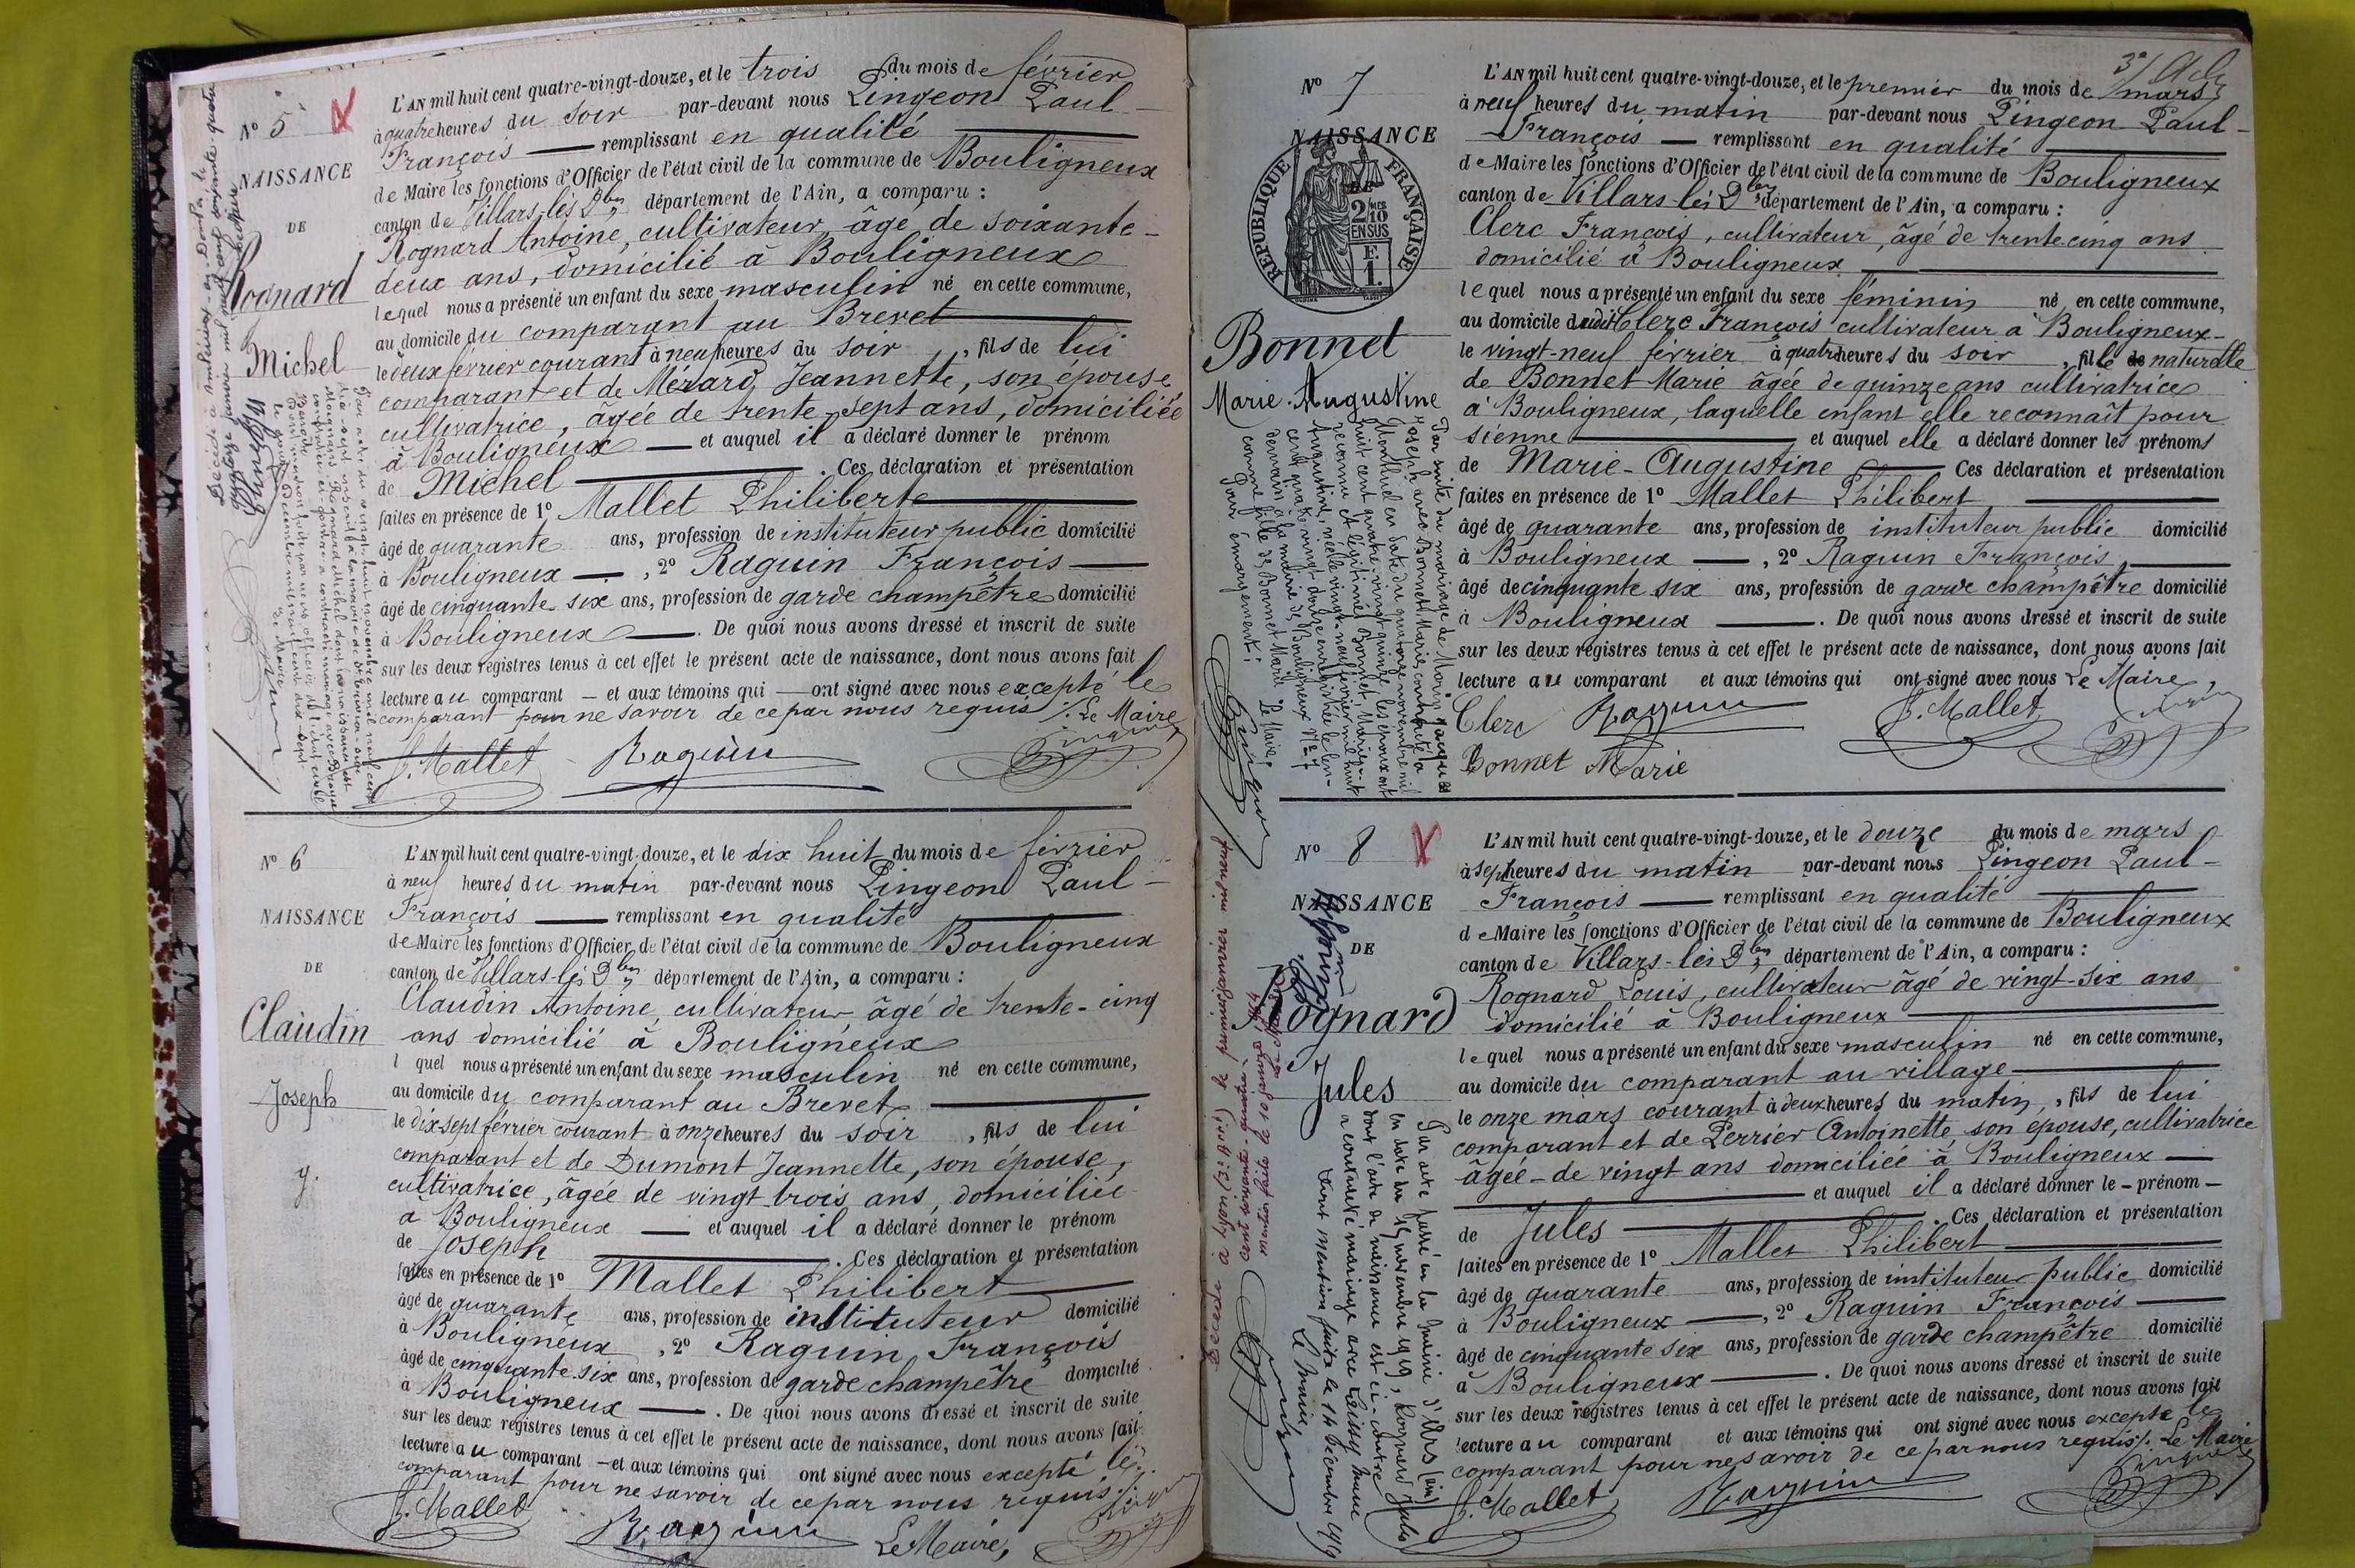 N° 5
NAISSANCE
DE
Rognard
Michel
L'AN mil huit cent quatre-vingt-douze, et le trois du mois de février
à quatre heures du soir par-devant nous Pingeon Paul-
François — remplissant en qualité
de Maire les fonctions d'Officier de l'état civil de la commune de Bouligneux
canton de Villars-les-Dbes département de l'Ain, a comparu :
Rognard Antoine, cultivateur, âgé de soixante-
deux ans, domicilié à Bouligneux
lequel nous a présenté un enfant du sexe masculin né en cette commune,
au domicile du comparant au Brevet
le deux février courant à neuf heures du soir, fils de lui
comparant et de Mézard Jeannette, son épouse
cultivatrice, âgée de trente-sept ans, domiciliée
à Bouligneux — et auquel il a déclaré donner le prénom
de Michel — . Ces déclaration et présentation
faites en présence de 1° Mallet Philibert
âgé de quarante ans, profession de instituteur public domicilié
à Bouligneux — , 2° Raguin François —
âgé de cinquante six ans, profession de garde champêtre domicilié
à Bouligneux — . De quoi nous avons dressé et inscrit de suite
sur les deux registres tenus à cet effet le présent acte de naissance, dont nous avons fait
lecture au comparant — et aux témoins qui — ont signé avec nous excepté le
comparant pour ne savoir de ce par nous requis ./. Le Maire
J. Mallet Raguin Pingeon
N° 6
NAISSANCE
DE
Claudin
Joseph
y.
L'AN mil huit cent quatre-vingt-douze, et le dix huit du mois de février
à neuf heures du matin par-devant nous Pingeon Paul-
François — remplissant en qualité
de Maire les fonctions d'Officier de l'état civil de la commune de Bouligneux
canton de Villars-les-Dbes département de l'Ain, a comparu :
Claudin Antoine, cultivateur, âgé de trente-cinq
ans domicilié à Bouligneux
l quel nous a présenté un enfant du sexe masculin né en cette commune,
au domicile du comparant au Brevet
le dix sept février courant à onze heures du soir, fils de lui
comparant et de Dumont Jeannette, son épouse,
cultivatrice, âgée de vingt-trois ans, domiciliée
à Bouligneux — et auquel il a déclaré donner le prénom
de Joseph — . Ces déclaration et présentation
faites en présence de 1° Mallet Philibert
âgé de quarante ans, profession de instituteur domicilié
à Bouligneux , 2° Raguin François
âgé de cinquante six ans, profession de garde champêtre domicilié
à Bouligneux — . De quoi nous avons dressé et inscrit de suite
sur les deux registres tenus à cet effet le présent acte de naissance, dont nous avons fait
lecture au comparant — et aux témoins qui ont signé avec nous excepté le
comparant pour ne savoir de ce par nous requis ./.
J. Mallet Raguin Le Maire, Pingeon
3e/
N° 7
NAISSANCE
DE
RÉPUBLIQUE FRANÇAISE
2/10 EN SUS
F. 1.
Bonnet
Marie-Augustine
L'AN mil huit cent quatre-vingt-douze, et le premier du mois de mars
à neuf heures du matin par-devant nous Pingeon Paul-
François — remplissant en qualité
de Maire les fonctions d'Officier de l'état civil de la commune de Bouligneux
canton de Villars-les-Dbes département de l'Ain, a comparu :
Clerc François, cultivateur, âgé de trente cinq ans
domicilié à Bouligneux
lequel nous a présenté un enfant du sexe féminin né en cette commune,
au domicile dudit Clerc François cultivateur à Bouligneux-
le vingt-neuf février à quatre heures du soir, fille naturelle
de Bonnet Marie âgée de quinze ans cultivatrice
à Bouligneux, laquelle enfant elle reconnaît pour
sienne — et auquel elle a déclaré donner les prénoms
de Marie-Augustine — Ces déclaration et présentation
faites en présence de 1° Mallet Philibert
âgé de quarante ans, profession de instituteur public domicilié
à Bouligneux — , 2° Raguin François
âgé de cinquante six ans, profession de garde champêtre domicilié
à Bouligneux — . De quoi nous avons dressé et inscrit de suite
sur les deux registres tenus à cet effet le présent acte de naissance, dont nous avons fait
lecture au comparant et aux témoins qui ont signé avec nous Le Maire,
Clerc Raguin J. Mallet Pingeon
Bonnet Marie
Par suite du mariage de Morin
Joseph avec Bonnet Marie, contracté à
Monthiel en date du quatorze novembre mil
huit cent quatre-vingt quinze, les époux ont
reconnu et légitimé Bonnet, Marie-
Augustine, née le vingt-neuf février mil huit
cent quatre vingt douze enregistrée le len-
demain à la mairie de Bouligneux N° 7
comme fille de Bonnet Marie
Pour émargement : Le Maire,
N° 8
NAISSANCE
DE
Rognard
Jules
L'AN mil huit cent quatre-vingt-douze, et le douze du mois de mars
à sept heures du matin par-devant nous Pingeon Paul-
François — remplissant en qualité
de Maire les fonctions d'Officier de l'état civil de la commune de Bouligneux
canton de Villars-les-Dbes département de l'Ain, a comparu :
Rognard Louis, cultivateur âgé de vingt-six ans
domicilié à Bouligneux
lequel nous a présenté un enfant du sexe masculin né en cette commune,
au domicile du comparant au village
le onze mars courant à deux heures du matin, fils de lui
comparant et de Perrier Antoinette, son épouse, cultivatrice
âgée de vingt ans domiciliée à Bouligneux —
et auquel il a déclaré donner le - prénom -
de Jules — . Ces déclaration et présentation
faites en présence de 1° Mallet Philibert
âgé de quarante ans, profession de instituteur public domicilié
à Bouligneux — , 2° Raguin François —
âgé de cinquante six ans, profession de garde champêtre domicilié
à Bouligneux — . De quoi nous avons dressé et inscrit de suite
sur les deux registres tenus à cet effet le présent acte de naissance, dont nous avons fait
lecture au comparant et aux témoins qui ont signé avec nous excepté le
comparant pour ne savoir de ce par nous requis ./. Le Maire
J. Mallet Raguin Pingeon
Par acte passé en la mairie d'Ars (Ain)
en date du 15 novembre 1919, Rognard Jules
dont l'acte de naissance est ci-contre
a contracté mariage avec
dont mention faite le 14 décembre 1919
Le Maire,
Décédé à Lyon (3e Arrt) le premier janvier mil neuf
cent soixante-quatre
mention faite le 10 janvier 1964